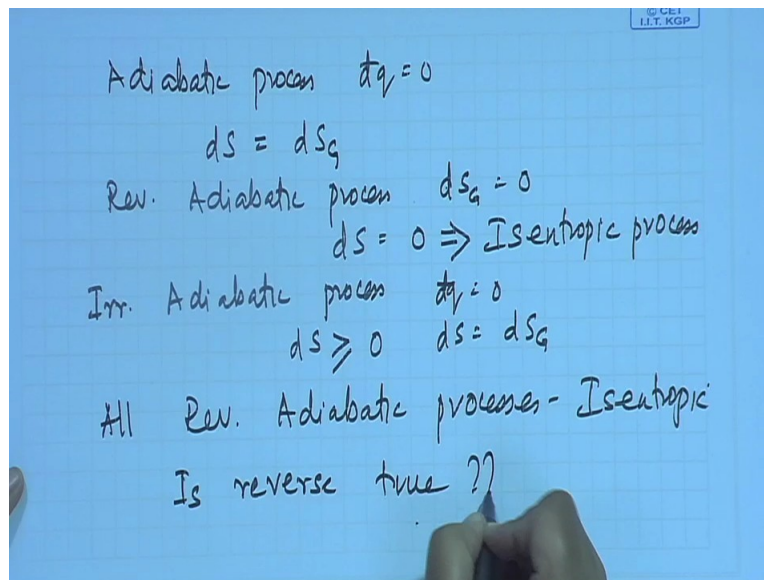 © CET
I.I.T. KGP
Adiabatic process đq = 0
dS = dS_G
Rev. Adiabatic process dS_G = 0
dS = 0 ⇒ Isentropic process
Irr. Adiabatic process đq = 0
dS ⩾ 0 dS = dS_G
All Rev. Adiabatic processes - Isentropic
Is reverse true ??